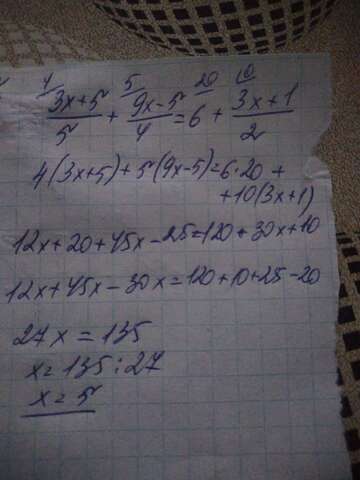 4 5 20 10
(3x+5)/5 + (9x-5)/4 = 6 + (3x+1)/2
4(3x+5)+5(9x-5)=6·20+
+10(3x+1)
12x+20+45x-25=120+30x+10
12x+45x-30x=120+10+25-20
27x=135
x=135:27
x=5